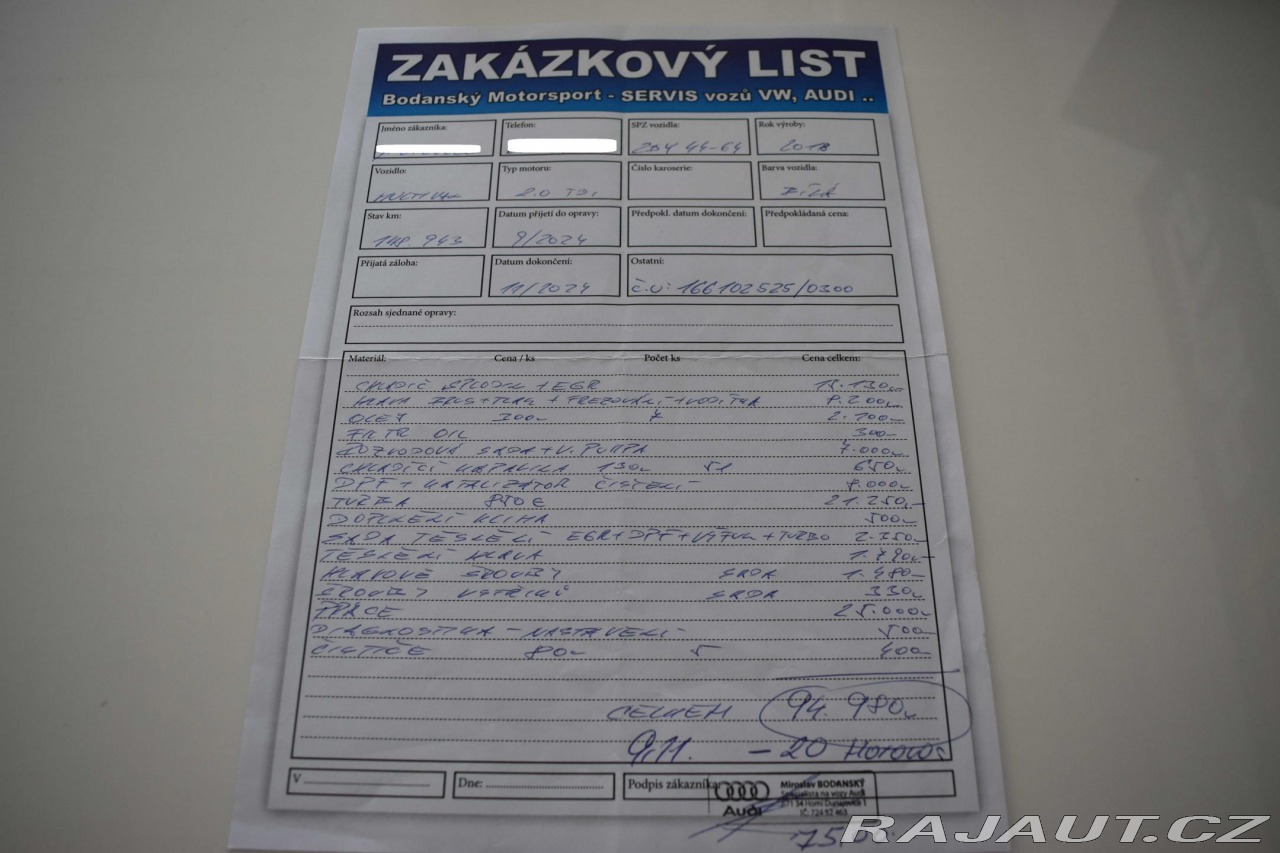 ZAKÁZKOVÝ LIST
Bodanský Motorsport - SERVIS vozů VW, AUDI ..
Jméno zákazníka: Telefon: SPZ vozidla: Rok výroby:
44-64 2018
Vozidlo: Typ motoru: Číslo karoserie: Barva vozidla:
2.0 TDI BÍLÁ
Stav km: Datum přijetí do opravy: Předpokl. datum dokončení: Předpokládaná cena:
9/2024
Přijatá záloha: Datum dokončení: Ostatní:
11/2024 č.ú: 166102525/0300
Rozsah sjednané opravy:
Materiál: Cena / ks Počet ks Cena celkem:
CHLADIČ SPALIN + EGR
HLAVA + TLAK + FRÉZOVÁNÍ + VODÍTKA 8.200,-
OLEJ 300,- 7 2.100,-
FILTR OIL 300,-
ROZVODOVÁ SADA + V. PUMPA 7.000,-
CHLADÍCÍ KAPALINA 130,- 5l 650,-
DPF + KATALIZÁTOR ČISTĚNÍ 8.000,-
TURBA 850 € 21.250,-
DOPLNĚNÍ KLIMA 500,-
SADA TĚSNĚNÍ EGR + DPF + VÝFUK + TURBO 2.750,-
TĚSNĚNÍ HLAVA
HLAVOVÉ ŠROUBY SADA 1.480,-
ŠROUBY VSTŘIKŮ SADA 330,-
PRÁCE 25.000,-
DIAGNOSTIKA - NASTAVENÍ 500,-
ČISTIČE 80,- 5 400,-
CELKEM 94.980,-
9.11. - 20 HOTOVOST
V Dne: Podpis zákazníka:
Audi
Miroslav BODANSKÝ
Specialista na vozy Audi
671 34 Horní Dunajovice
IČ: 724 52 463
RAJAUT.CZ